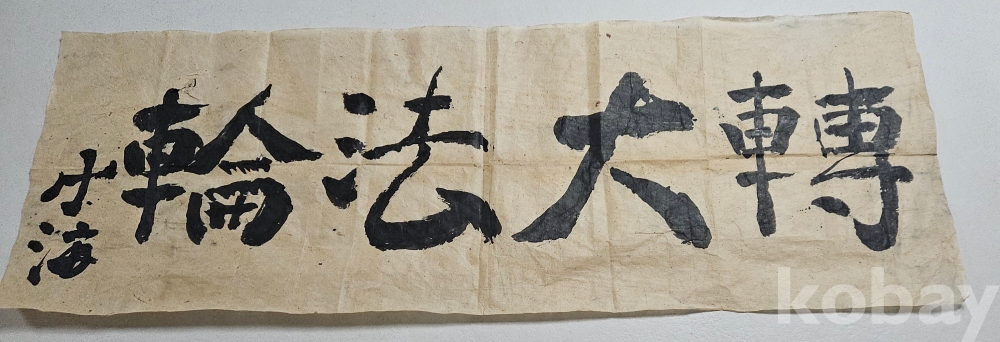 轉大法輪
小海
kobay